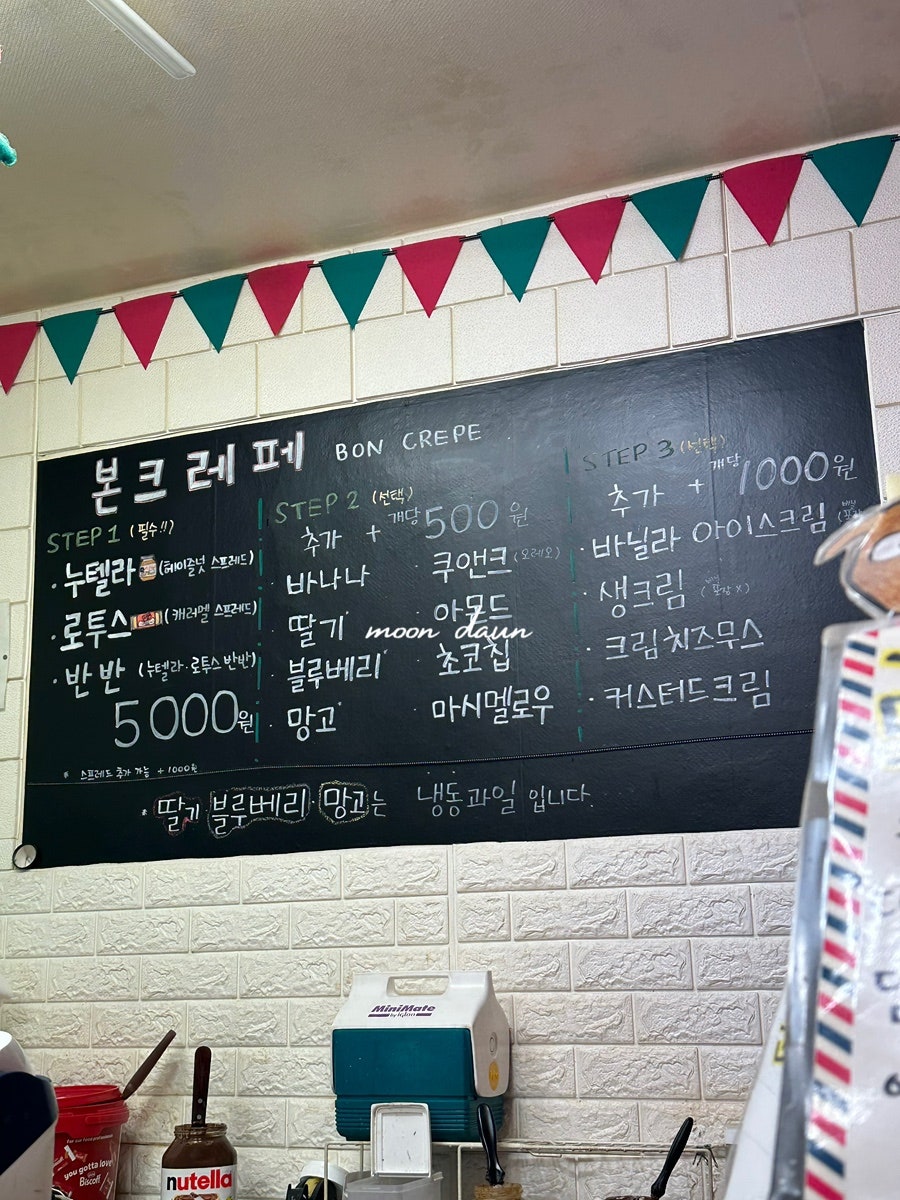 본크레페 BON CREPE
STEP 1 (필수!!)
· 누텔라 (헤이즐넛 스프레드)
· 로투스 (캐러멜 스프레드)
· 반반 (누텔라·로투스 반반)
5000원
* 스프레드 추가 가능 + 1000원
STEP 2 (선택)
추가 + 개당 500원
· 바나나
· 딸기*
· 블루베리*
· 망고*
· 쿠앤크 (오레오)
· 아몬드
· 초코칩
· 마시멜로우
STEP 3 (선택)
추가 + 개당 1000원
· 바닐라 아이스크림
· 생크림 (포장 X)
· 크림치즈무스
· 커스터드크림
* 딸기 블루베리 망고는 냉동과일 입니다.
moon daun
MiniMate
by Igloo
you gotta love
Biscoff
nutella